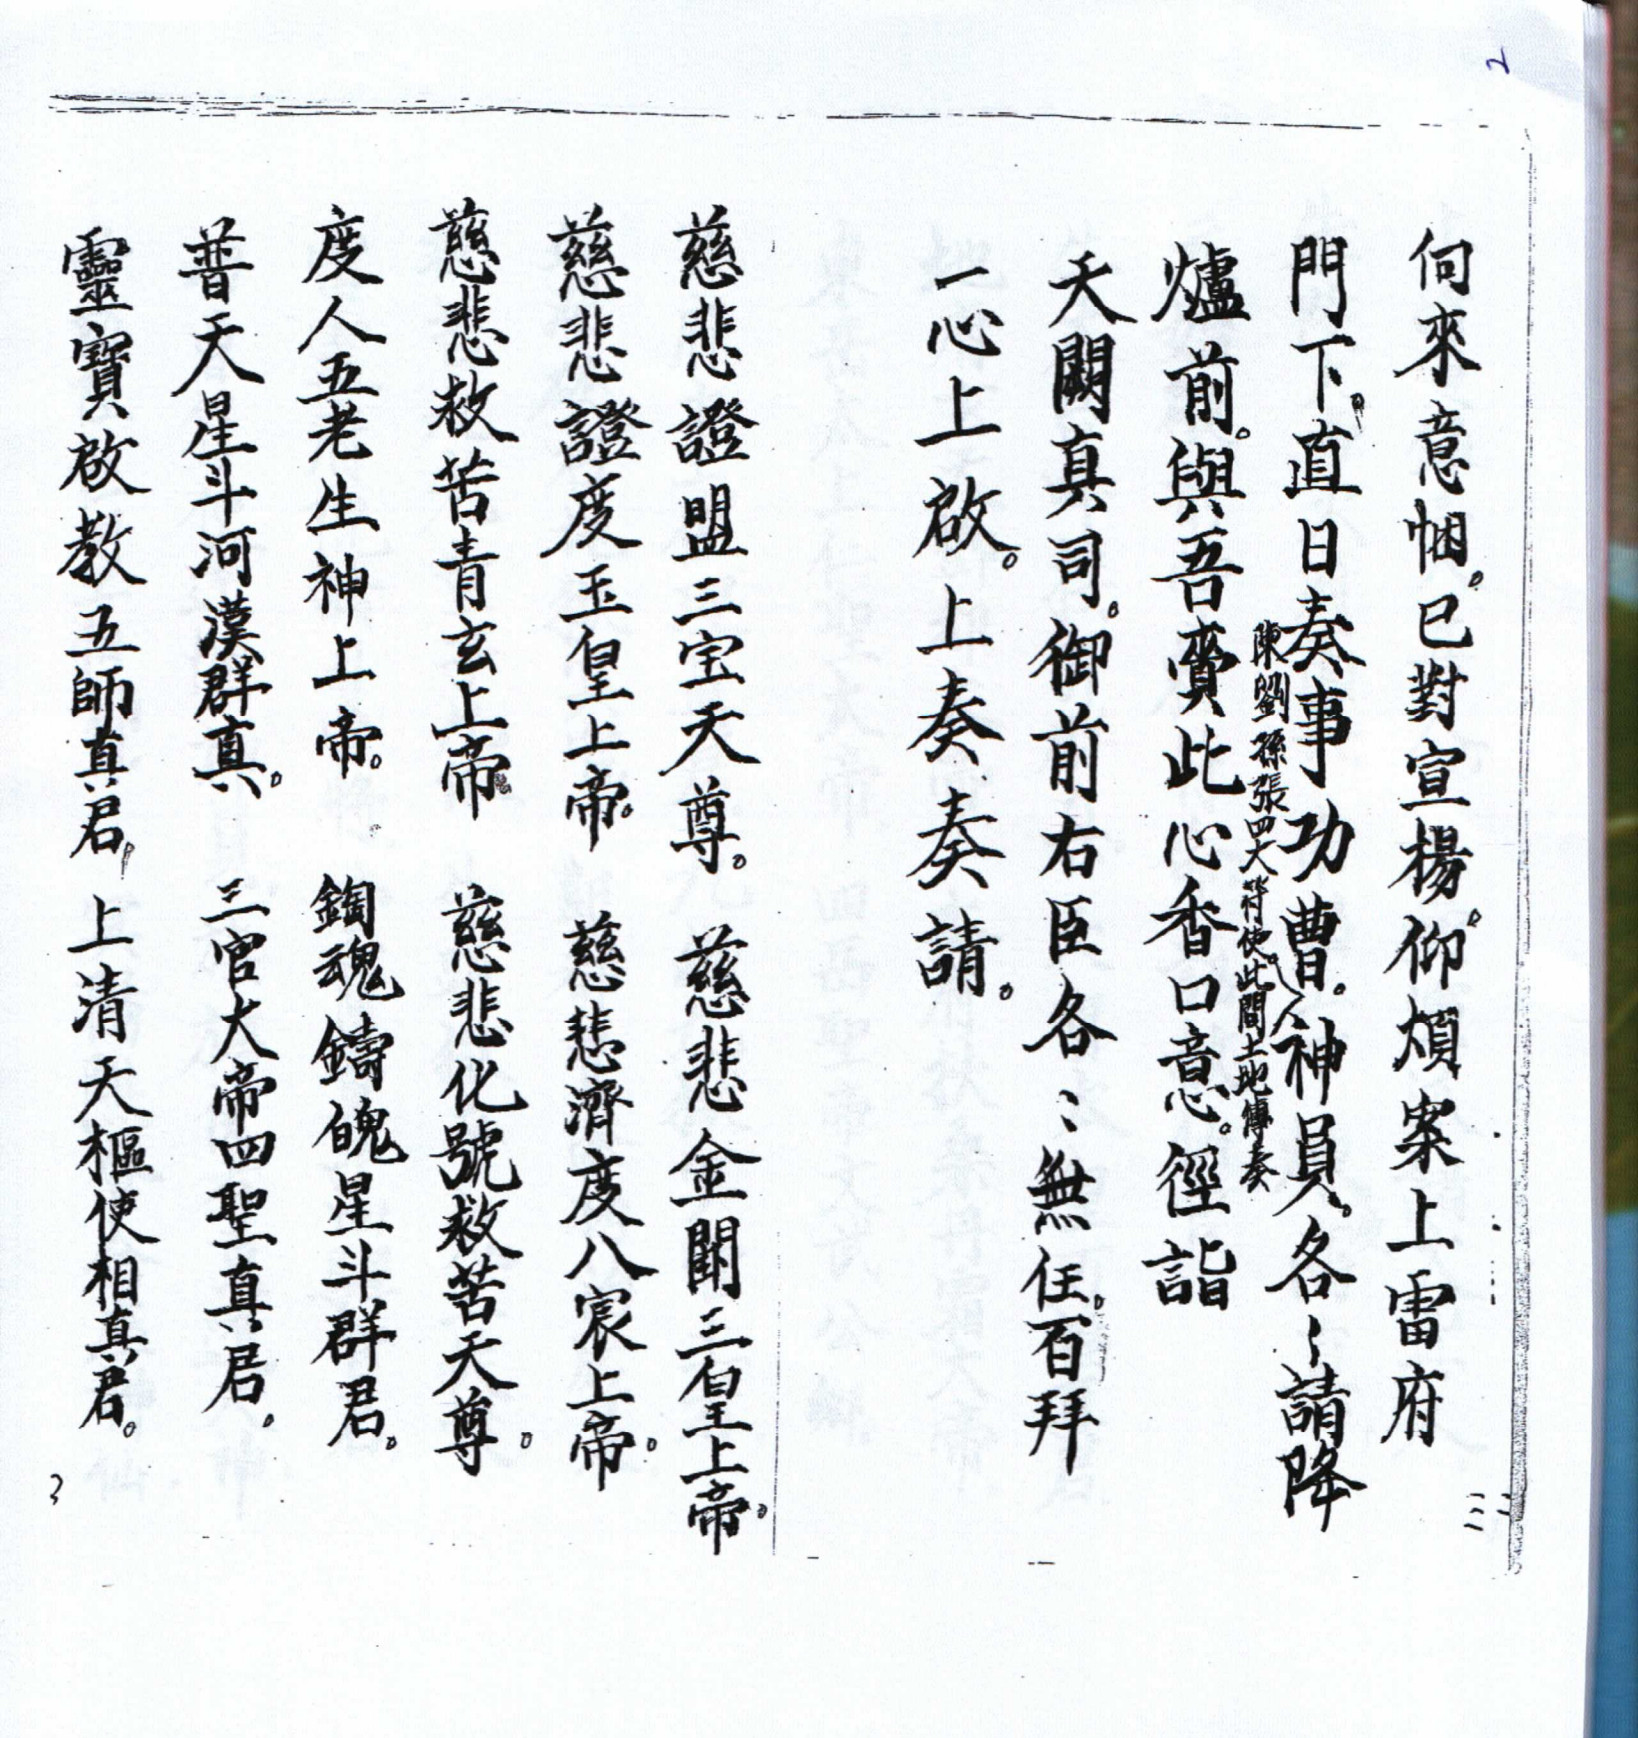 2
伺來意悃。已對宣揚。仰煩案上雷府
門下。直日奏事功曹。神員。各々請降
陳劉孫張四大符使。此間土地傳奏
爐前。與吾賫此心香口意。徑詣
天闕真司。御前右臣各〻無任。百拜
一心上啟。上奏奏請。
慈悲證盟三宝天尊。 慈悲金闕三皇上帝。
慈悲證度玉皇上帝。 慈悲濟度八宸上帝。
慈悲救苦青玄上帝。 慈悲化號救苦天尊。
度人五老生神上帝。 鍧魂鑄魄星斗群君。
普天星斗河漢群真。 三官大帝四聖真君。
靈寶啟教五師真君。 上清天樞使相真君。
3